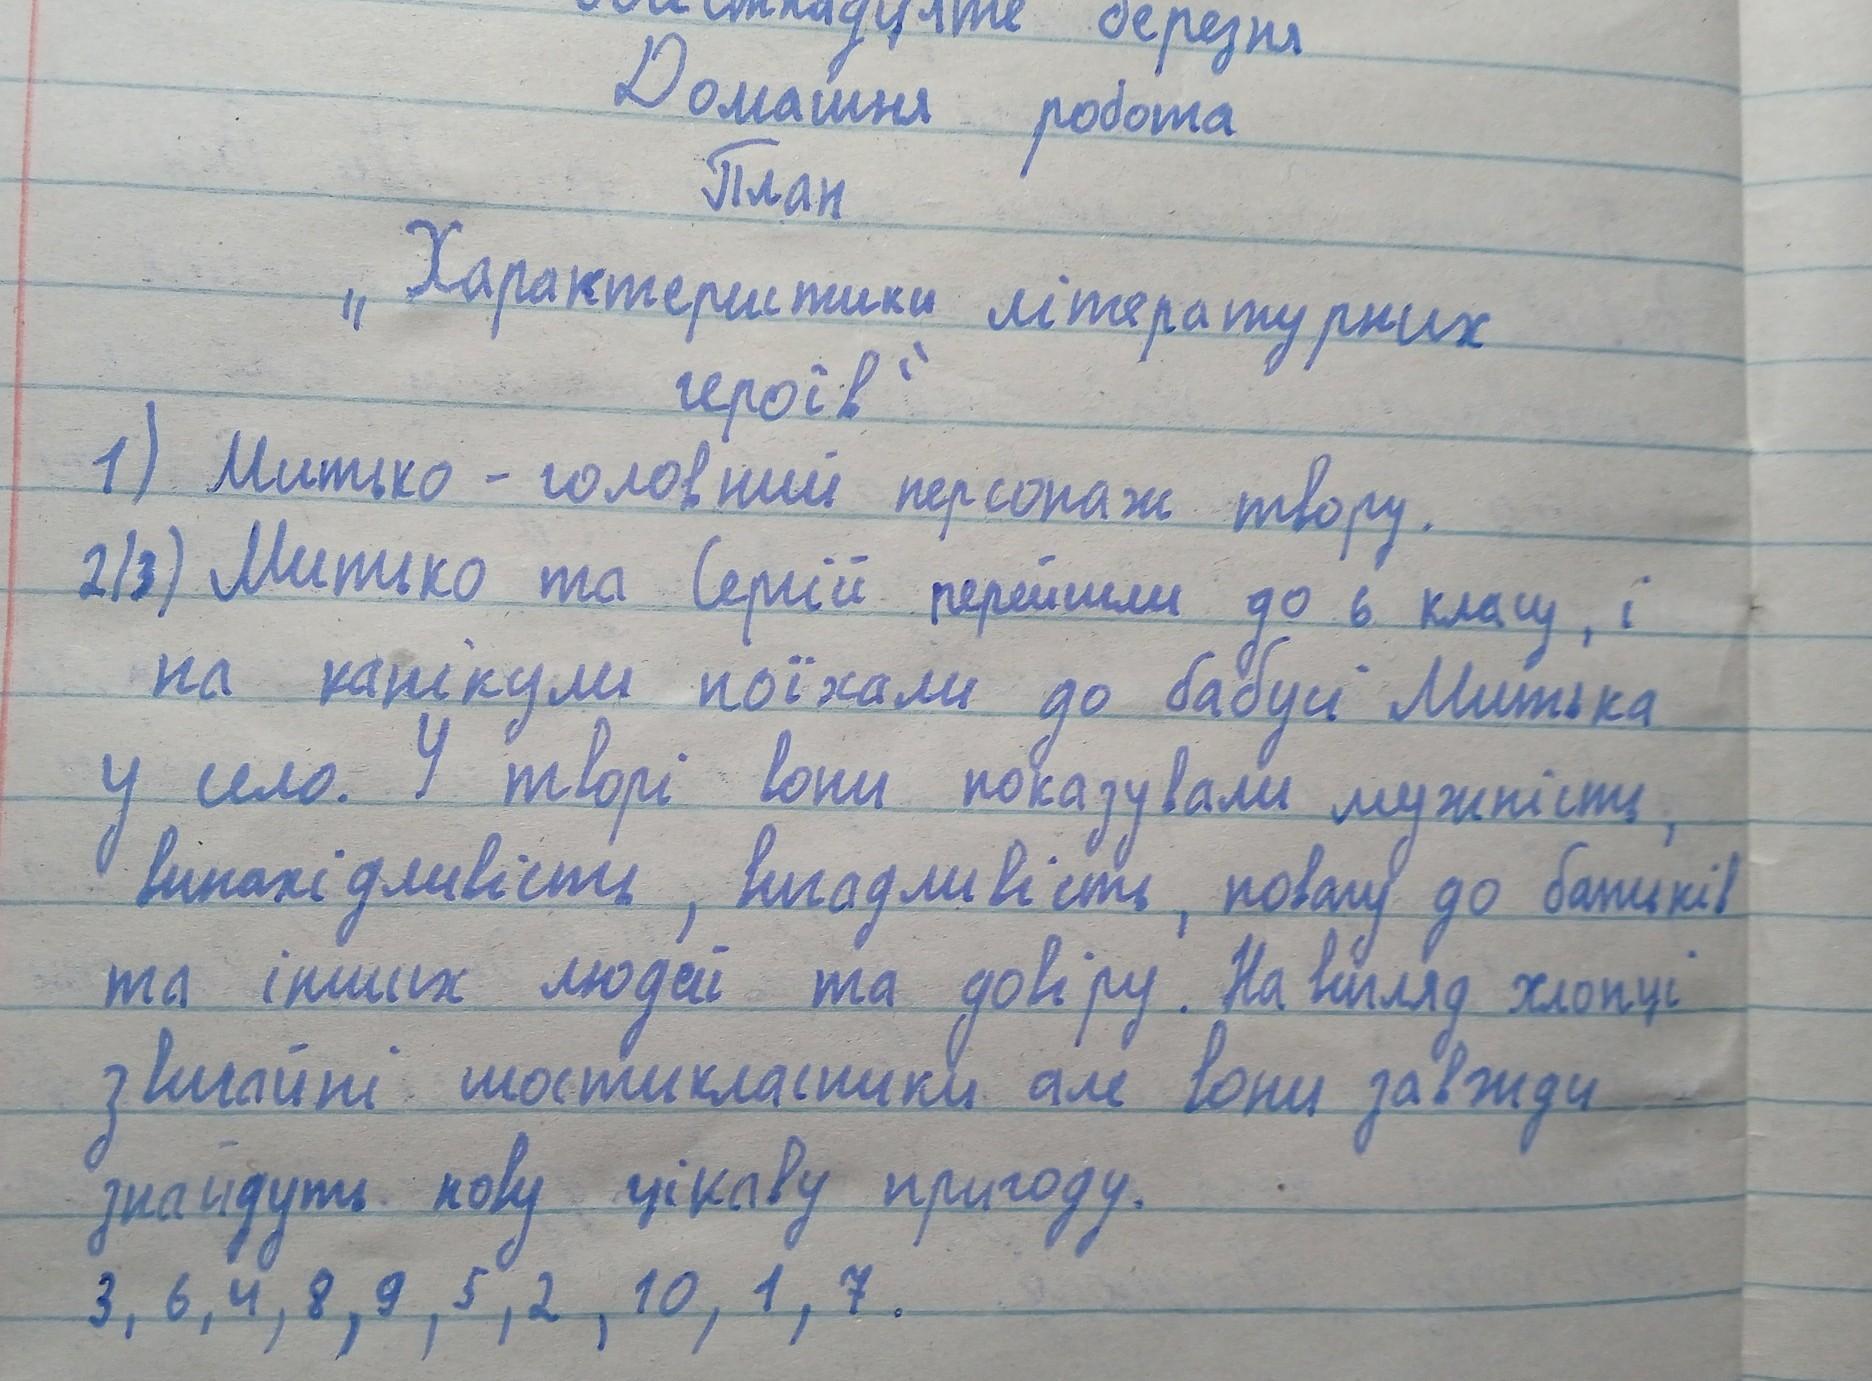 березня
Домашня робота
План
„Характеристики літературних
героїв“
1) Митько - головний персонаж твору.
2/3) Митько та Сергій перейшли до 6 класу, і
на канікули поїхали до бабусі Митька
у село. У творі вони показували мужність,
винахідливість, вигадливість, повагу до батьків
та інших людей та довіру. На вигляд хлопці
звичайні шостикласники але вони завжди
знайдуть нову цікаву пригоду.
3, 6, 4, 8, 9, 5, 2, 10, 1, 7.